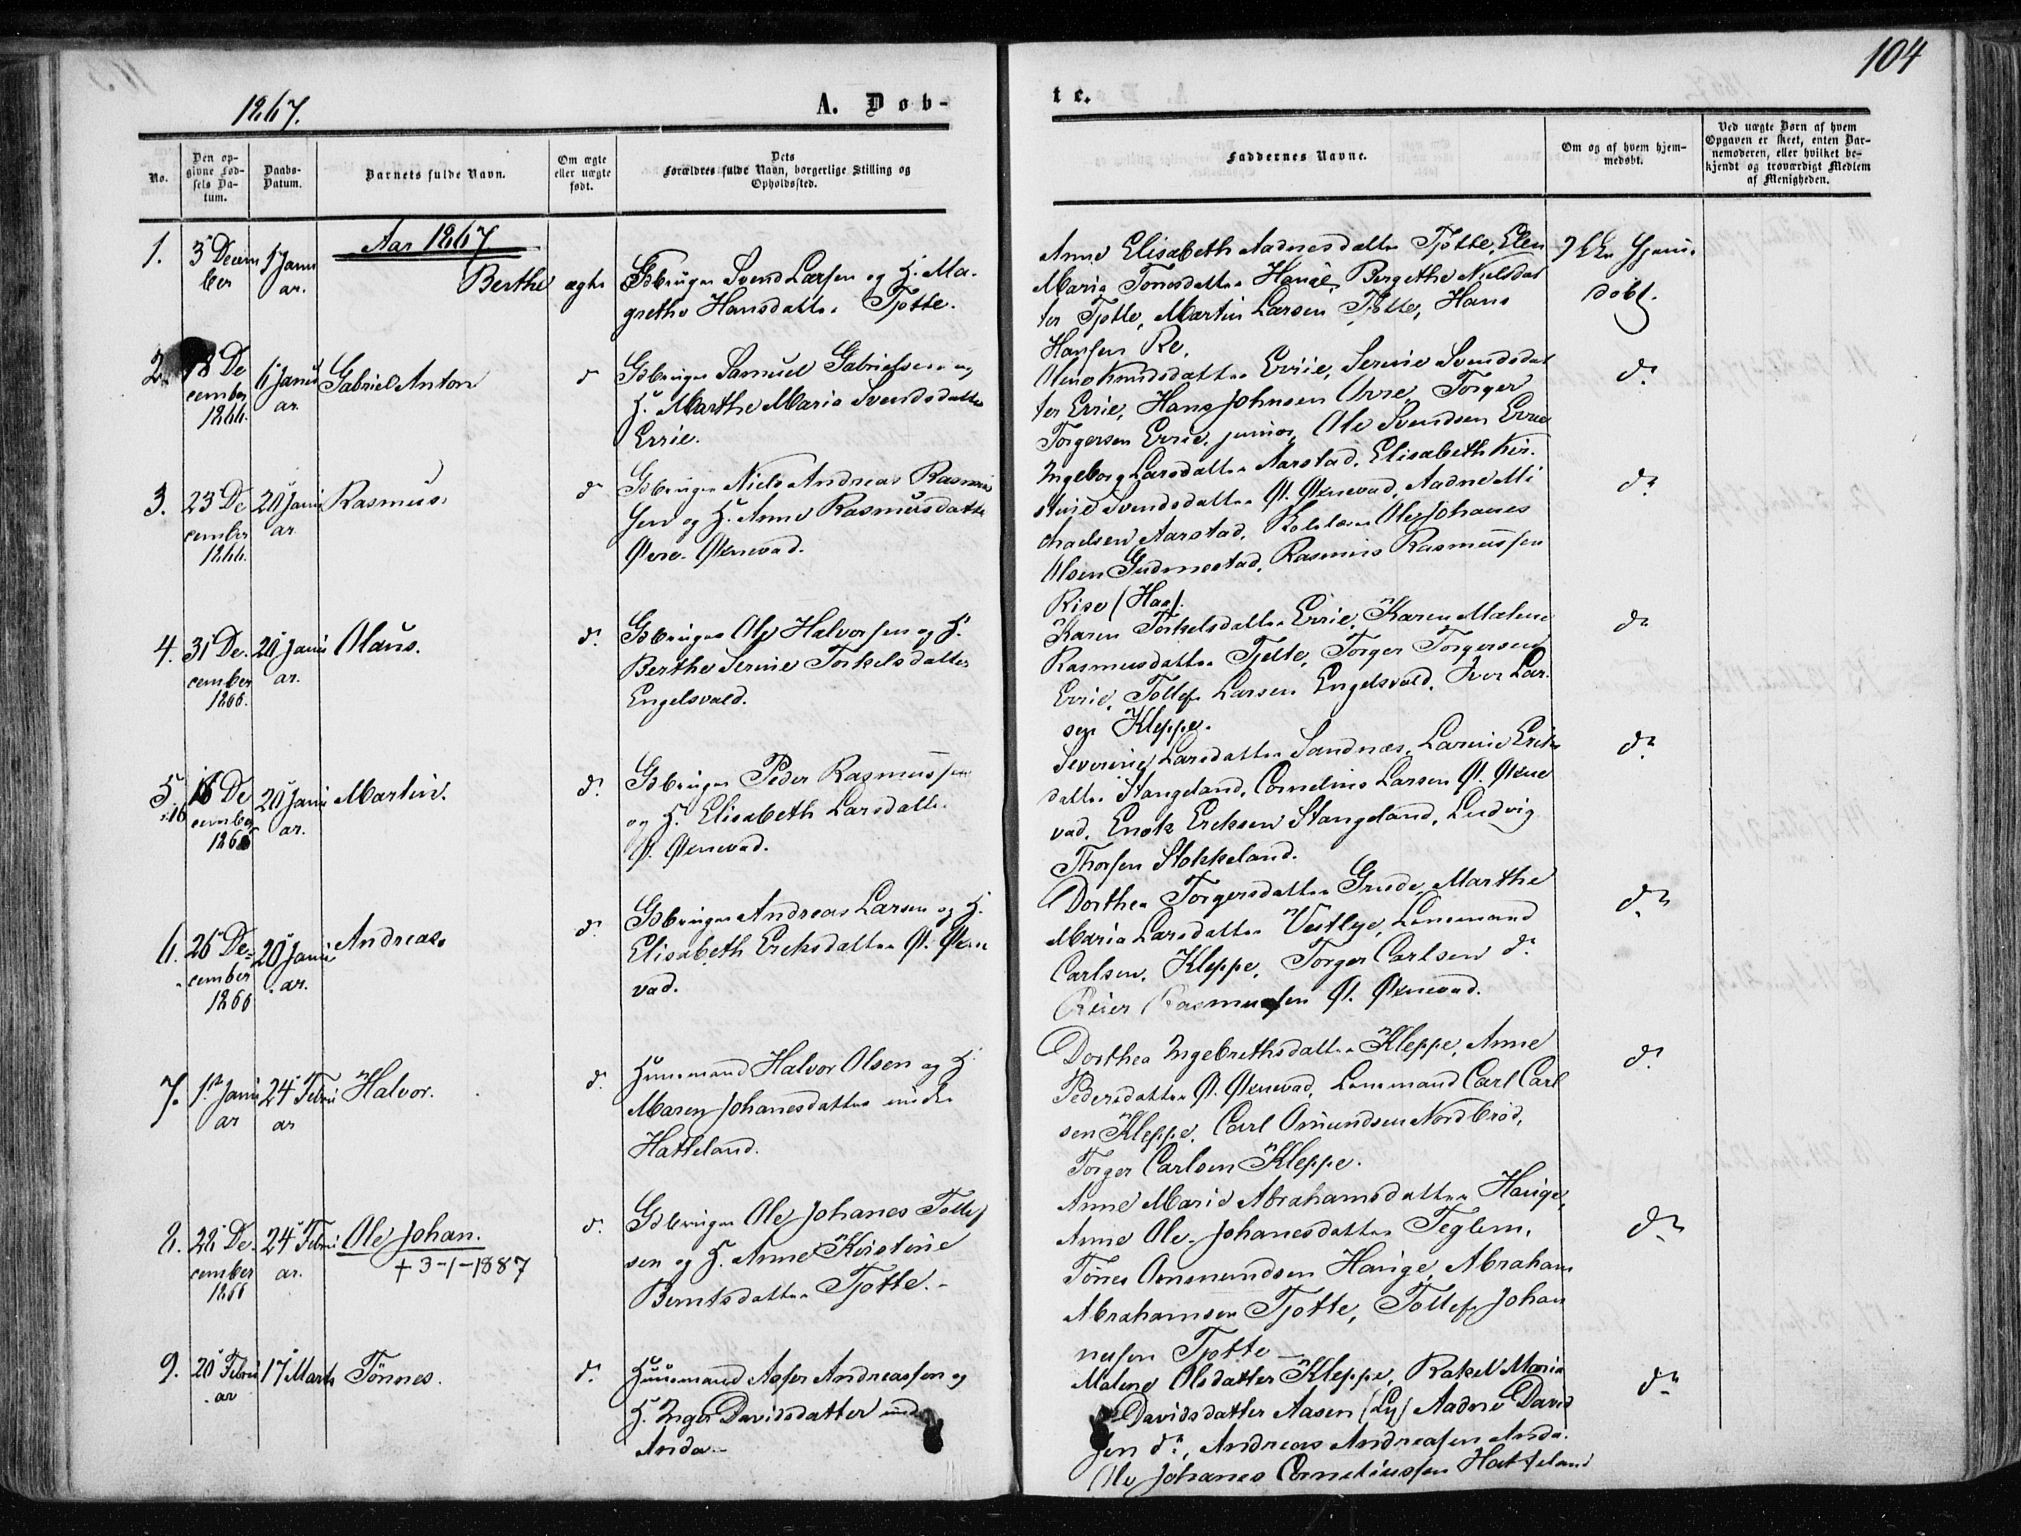 104
1867.
A. Døb-
te.
No.
Den op-
givne Fød-
sels Da-
tum.
Daabs-
Datum.
Barnets fulde Navn.
Om ægte
eller uægte
født.
Dets
Forældres fulde Navn, borgerlige Stilling og
Opholdssted.
Faddernes Navne.
Om og af hvem hjem-
medøbt.
Ved uægte Børn af hvem
Opgaven er skeet, enten Bar-
nemoderen, eller hvilket be-
kjendt og troværdigt Medlem
af Menigheden.
Aar 1867
1.
3 Decem
ber
1 Janu
ar.
Berthe
ægte
Gdbruger Svend Larsen og H. Ma-
grethe Hansdatter Tjøtte.
Anne Elisabeth Aadnesdatter Tjøtte, Elen
Maria Tønesdatter Hauge, Bergethe Nielsdat
ter Tjøtte, Martin Larsen Tjøtte, Hans
Hansen Re.
Hjem
døbt.
2.
18 De
cember
1866.
6 Janu
ar.
Gabriel Anton
d
Gdbruger Samuel Gabrielsen og
H. Marthe Maria Svendsdatter
Erie.
Knudsdatter Evrie, Serine Svendsdat
ter Erie, Hans Johnsen Orre, Torger
Torgersen Erie junior, Ole Svendsen Evrie
d.
3.
23 De
cember
1866.
20 Janu
ar.
Rasmus.
d
Gdbruger Niels Andreas Rasmus
sen og H. Anne Rasmusdatter
Øvre Øxnevad.
Ingeborg Larsdatter Aarstad, Elisabeth Kir.
stine Svendsdatter Ø. Øxnevad, Aadne Mi
chaelsen Aarstad, Ole Johanes
Olsen Gudmestad, Rasmus Rasmussen
Rise (Haa).
d.
4.
31 De.
cember
1866.
20 Janu
ar.
Olaus.
d.
Gdbruger Ole Halvorsen og H.
Berthe Serine Torkelsdatter
Engelsvold.
Karen Torkelsdatter Erie, Karen Malene
Rasmusdatter Tjøtte, Torger Torgersen
Evrie, Tollef Larsen Engelsvold, Iver Lar.
sen Kleppe.
d.
5.
16
18 De
cember
1866
20 Janu
ar.
Martin.
d.
Gdbruger Peder Rasmussen
og H. Elisabeth Larsdatter
Ø. Øxnevad.
Severine Larsdatter Sandnæs, Larine Eriks
datter Stangeland, Cornelius Larsen Ø. Øxne
vad, Enok Ericksen Stangeland, Ludvig
Thorsen Stokkeland.
d.
6.
26 De-
cember
1866
20 Janu
ar.
Andreas.
d.
Gdbruger Andreas Larsen og H.
Elisabeth Ericksdatter Ø. Øxne
vad.
Dorthea Torgersdatter Grude, Marthe
Maria Larsdatter Vestlye, Lensmand
Carlsen, Kleppe, Torger Carlsen d.
Reier Rasmussen Ø. Øxnevad.
d.
7.
1st Janu
ar
24 Febru
ar
Halvor.
d.
Huusmand Halvor Olsen og H.
Maren Johanesdatter under
Hatteland.
Dorthea Ingebrethsdatter Kleppe, Anne
Pedersdatter Ø. Øxnevad, Lensmand Carl Carl
sen Kleppe, Carl Omundsen Nordbrød,
Torger Carlsen Kleppe.
d.
8.
28 De.
cember
1866
24 Febru
ar.
Ole Johan.
+ 3-1-1887
d.
Gdbruger Ole Johanes Tollef
sen og H. Anne Kirstine
Berntsdatter Tjøtte.-
Anne Marie Abrahamsdatter Hauge,
Anne Ole-Johanesdatter Teglem,
Tønes Omundsen Hauge, Abraham
Abrahamsen Tjøtte, Tollef Johan
nesen Tjøtte
d.
9.
20 Febru
ar
17 Marts
Tønnes.
d.
Huusmand Asser Andreassen og
H. Inger Davidsdatter under
Anda.-
Malene Olsdatter Kleppe, Rakel Maria
Davidsdatter Aasen (Ly) Aadne David
sen d., Andreas Andreasen Anda.
Ole Johanes Corneliussen Hatteland
d.